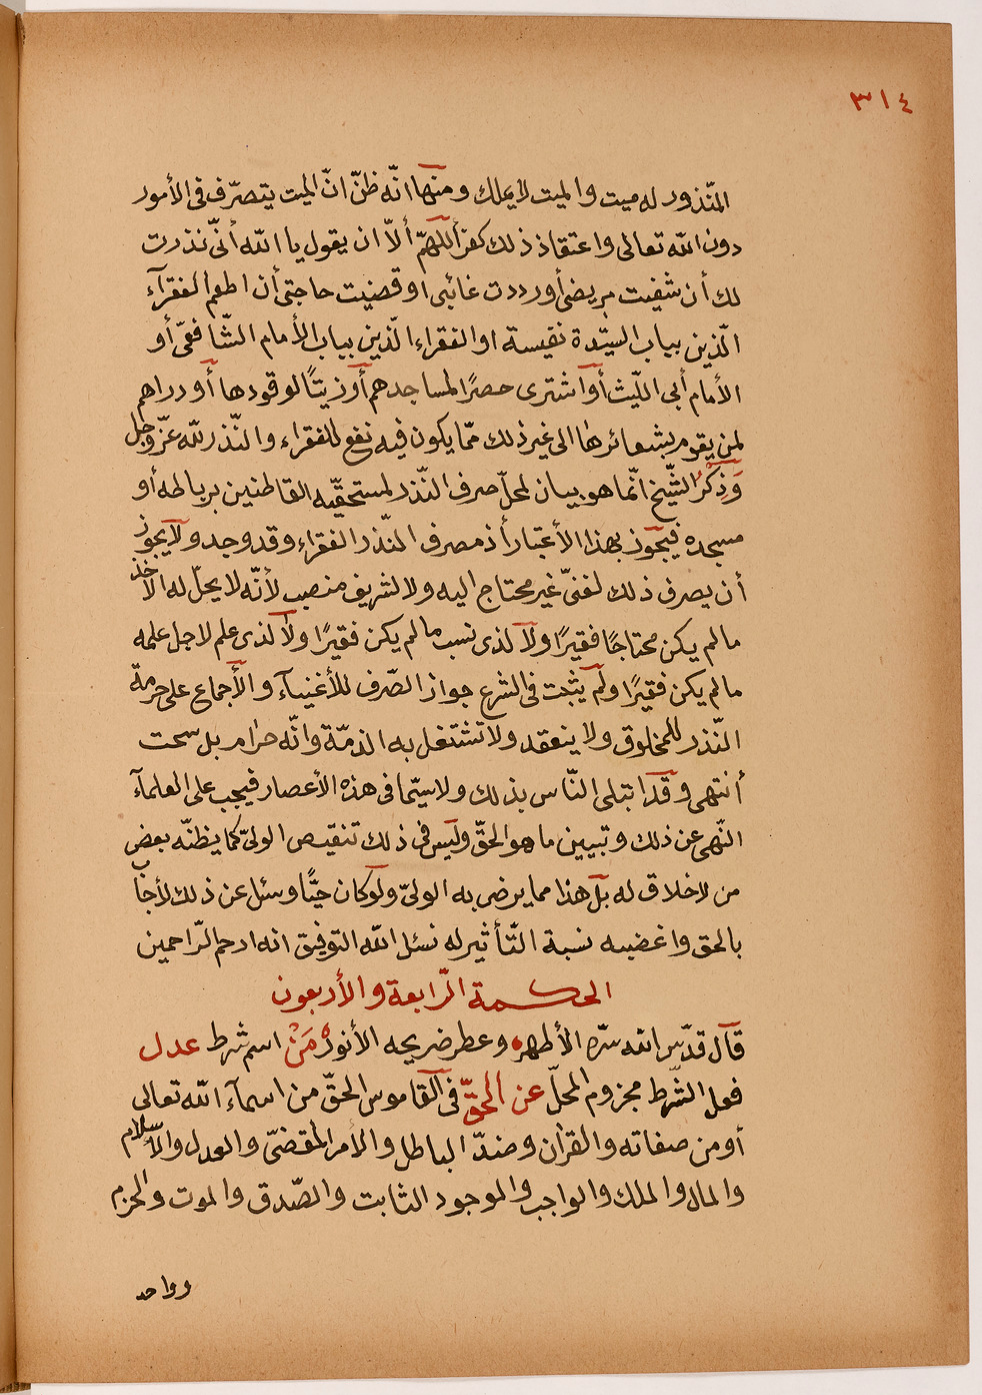 ٣١٤
المنّذور له ميت والميت لا يملك ومنها انّه ظنّ انّ الميت يتصرّف فى الأمور
دون الله تعالى واعتقاد ذلك كفر أللهمّ ألاّ ان يقول يا الله أنّى نذرت
لك أن شفيت مريضى أو رددت غائبى او قضيت حاجتى أن اطعم الفقرآء
الّذين بباب السيّدة نفيسة او الفقراء الّذين بباب الأمام الشّافعّى أو
الأمام أبى اللّيث أو اشترى حصرًا لمساجدهم أو زيتًا لوقودها أو دراهم
لمن يقوم بشعائرها الى غير ذلك ممّا يكون فيه نفع للفقراء والنّذر للّه عزّ وجل
وَذِكْرُ الشّيخ انّما هو بيان لمحلّ صرف النّذر لمستحقّيه القاطنين برباطه أو
مسجده فيجوز بهذا الأعتبار أذ مصرف المنّذر الفقراء وقد وجد ولا يجوز
أن يصرف ذلك لغنىّ غير محتاج اليه ولا لشريف منصب لأنّه لا يحلّ له الأخذ
مالم يكن محتاجًا فقيرًا ولا لذى نسب مالم يكن فقيرًا ولا لذى علم لاجل علمه
مالم يكن فقيرًا ولم يثبت فى الشرع جواز الصّرف للأغنيآء والأجماع على حرمة
النّذر للمخلوق ولا ينعقد ولا تشتغل به الذمّة وانّه حرام بل سحت
أنتهى وقد ابتلى النّاس بذلك ولاسيّما فى هذه الأعصار فيجب على العلمآء
النّهى عن ذلك وتبيين ما هو الحقّ وليس فى ذلك تنقيص الولىّ كما يظنّه بعض
من لاخلاق له بل هذا مما يرضى به الولىّ ولو كان حيًّا وسئل عن ذلك لأجاب
بالحق واغضبه نسبة التّأثير له نسئل اللّه التوفيق انه ارحم الرّاحمين
الحكمة الرّابعة والأربعون
قال قدّس اللّه سرّه الأطهر وعطر ضريحه الأنور مَنْ اسم شرط عدل
فعل الشّرط مجزوم المحلّ عن الحقّ فى القاموس الحقّ من اسمآء اللّه تعالى
أو من صفاته والقرأن وضدّ الباطل والأمر المقضىّ والعدل والأسلام
والمال والملك والواجب والموجود الثابت والصّدق والموت والحزم
وواحد